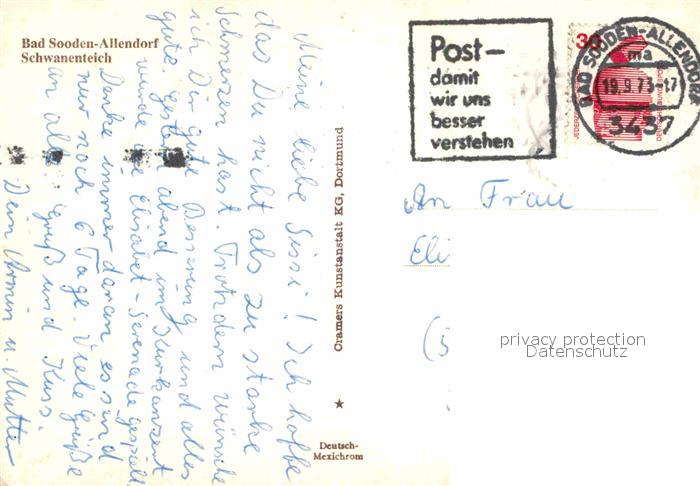 Bad Sooden-Allendorf
Schwanenteich
Meine liebe Sissi! Ich hoffe
das Du nicht als zu starke
Schmerzen hast. Trotzdem wünsche
ich Dir gute Besserung und alles
gute. Gestern abend im Kurkonzert
wurde die Elisabet-Serenade gespielt.
Denke immer daran es sind
nur noch 6 Tage. Viele Grüße
an alle. Gruß und Kuss.
Dein Armin u. Mutter
Cramers Kunstanstalt KG, Dortmund
Deutsch-
Mexichrom
Post-
damit
wir uns
besser
verstehen
30
BAD SOODEN-ALLENDORF
ma
19.9.73-17
3437
DEUTSCHE BUNDESPOST
An Frau
Eli
(5
privacy protection
Datenschutz